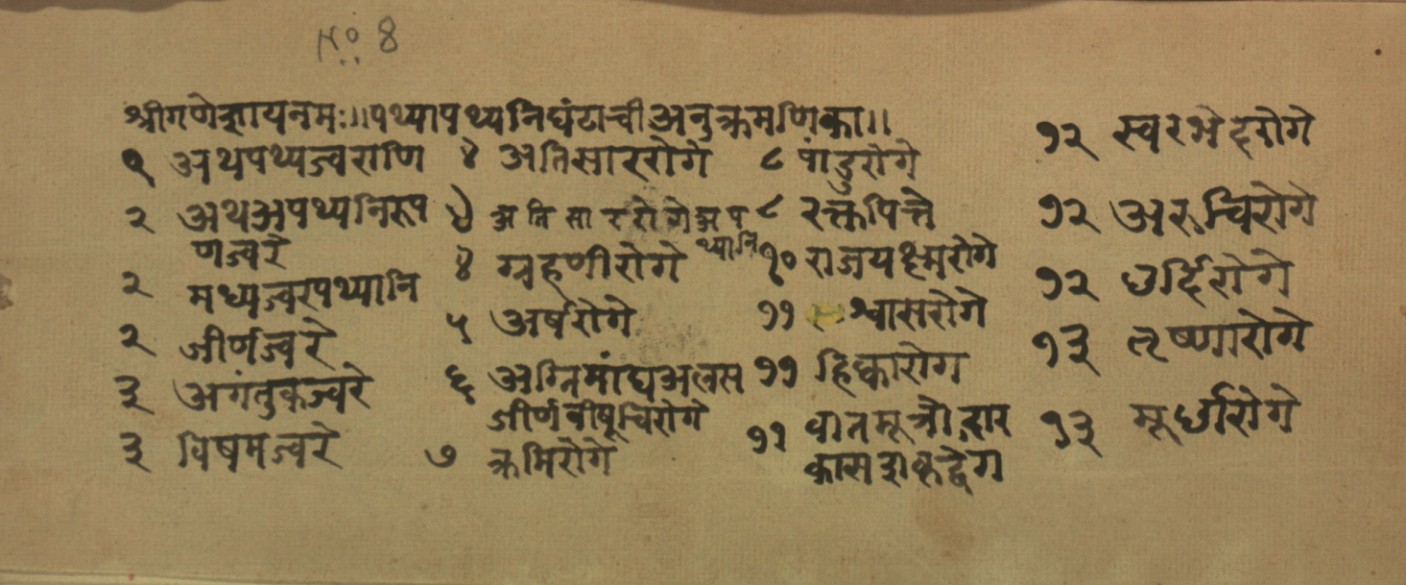 No. 8
श्रीगणेशायनमः॥पथ्यापथ्यनिघंटाचीअनुक्रमणिका॥
१ अथपथ्यज्वराणि
२ अथअपथ्यनिरूप
णज्वरे
२ मध्यज्वरपथ्यानि
२ जीर्णज्वरे
३ अगंतुकज्वरे
३ विषमज्वरे
४ अतिसाररोगे
४ अतिसाररोगेअप
थ्यानि
४ ग्रहणीरोगे
५ अर्षरोगे
६ अग्निमांद्यअलस
जीर्णवीषूचिरोगे
७ क्रमिरोगे
८ पांडुरोगे
८ रक्तपित्ते
१० राजयक्ष्मरोगे
११ श्वासरोगे
११ हिक्कारोग
११ वातमूत्रोद्गार
१२ स्वरभेदरोगे
१२ अरुचिरोगे
१२ छर्दिरोगे
१३ तृष्णारोगे
१३ मूर्छारोगे